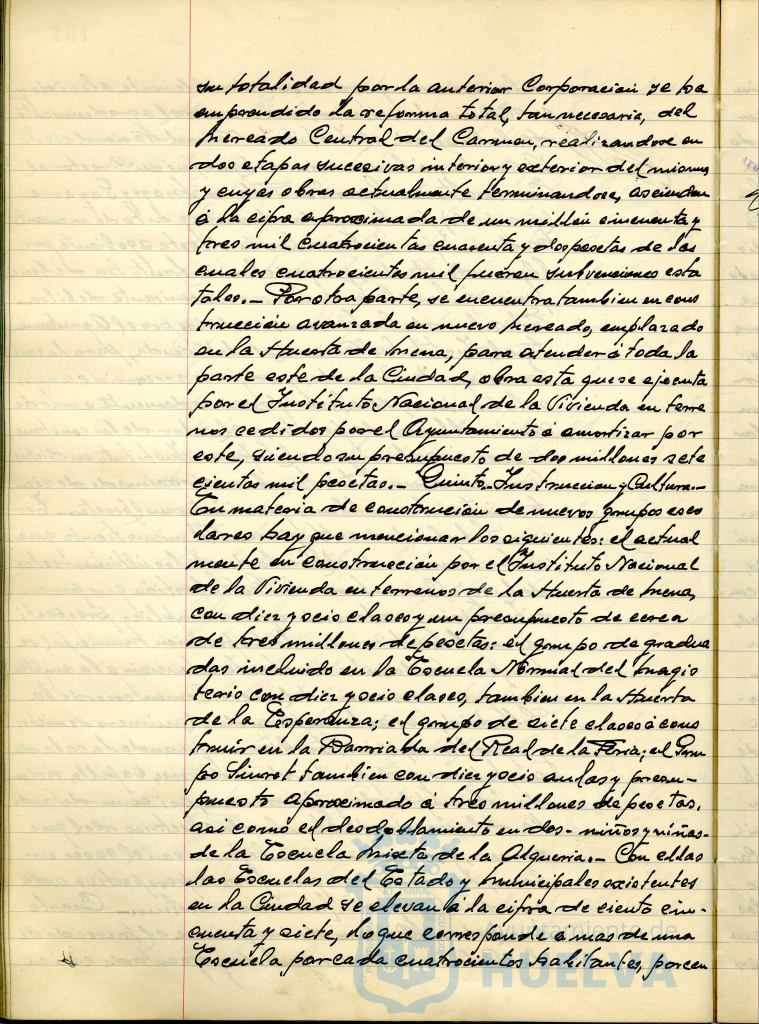 su totalidad por la anterior Corporación se ha
emprendido la reforma total, tan necesaria, del
Mercado Central del Carmen, realizandose en
dos etapas sucesivas interior y exterior del mismo
y cuyas obras actualmente terminandose, ascienden
á la cifra aproximada de un millón cincuenta y
tres mil cuatrocientas cuarenta y dos pesetas de las
cuales cuatrocientas mil fueron subvenciones esta
tales.- Por otra parte, se encuentra tambien en cons
trucción avanzada un nuevo Mercado, emplazado
en la Huerta de Mena, para atender á toda la
parte este de la Ciudad, obra esta que se ejecuta
por el Instituto Nacional de la Vivienda en terre
nos cedidos por el Ayuntamiento á amortizar por
este, siendo su presupuesto de dos millones sete
cientas mil pesetas.- Quinto.- Instruccion y Cultura.-
En materia de construcción de nuevos grupos esco
lares hay que mencionar los siguientes: el actual
mente en construcción por el Instituto Nacional
de la Vivienda en terrenos de la Huerta de Mena,
con diez y ocio clases y un presupuesto de cerca
de tres millones de pesetas: el grupo de gradua
das incluido en la Escuela Normal del Magis
terio con diez y ocio clases, tambien en la Huerta
de la Esperanza; el grupo de siete clases á cons
truir en la Barriada del Real de la Feria; el Gru
po Siurot tambien con diez y ocio aulas y presu-
puesto aproximado á tres millones de pesetas,
asi como el desdoblamiento en dos- niños y niñas-
de la Escuela Mixta de la Alqueria.- Con ellas
las Escuelas del Estado y Municipales existentes
en la Ciudad se elevan á la cifra de ciento cin-
cuenta y siete, lo que corresponde a mas de una
Escuela por cada cuatrocientos habitantes, porcen
Ayuntamiento de
HUELVA